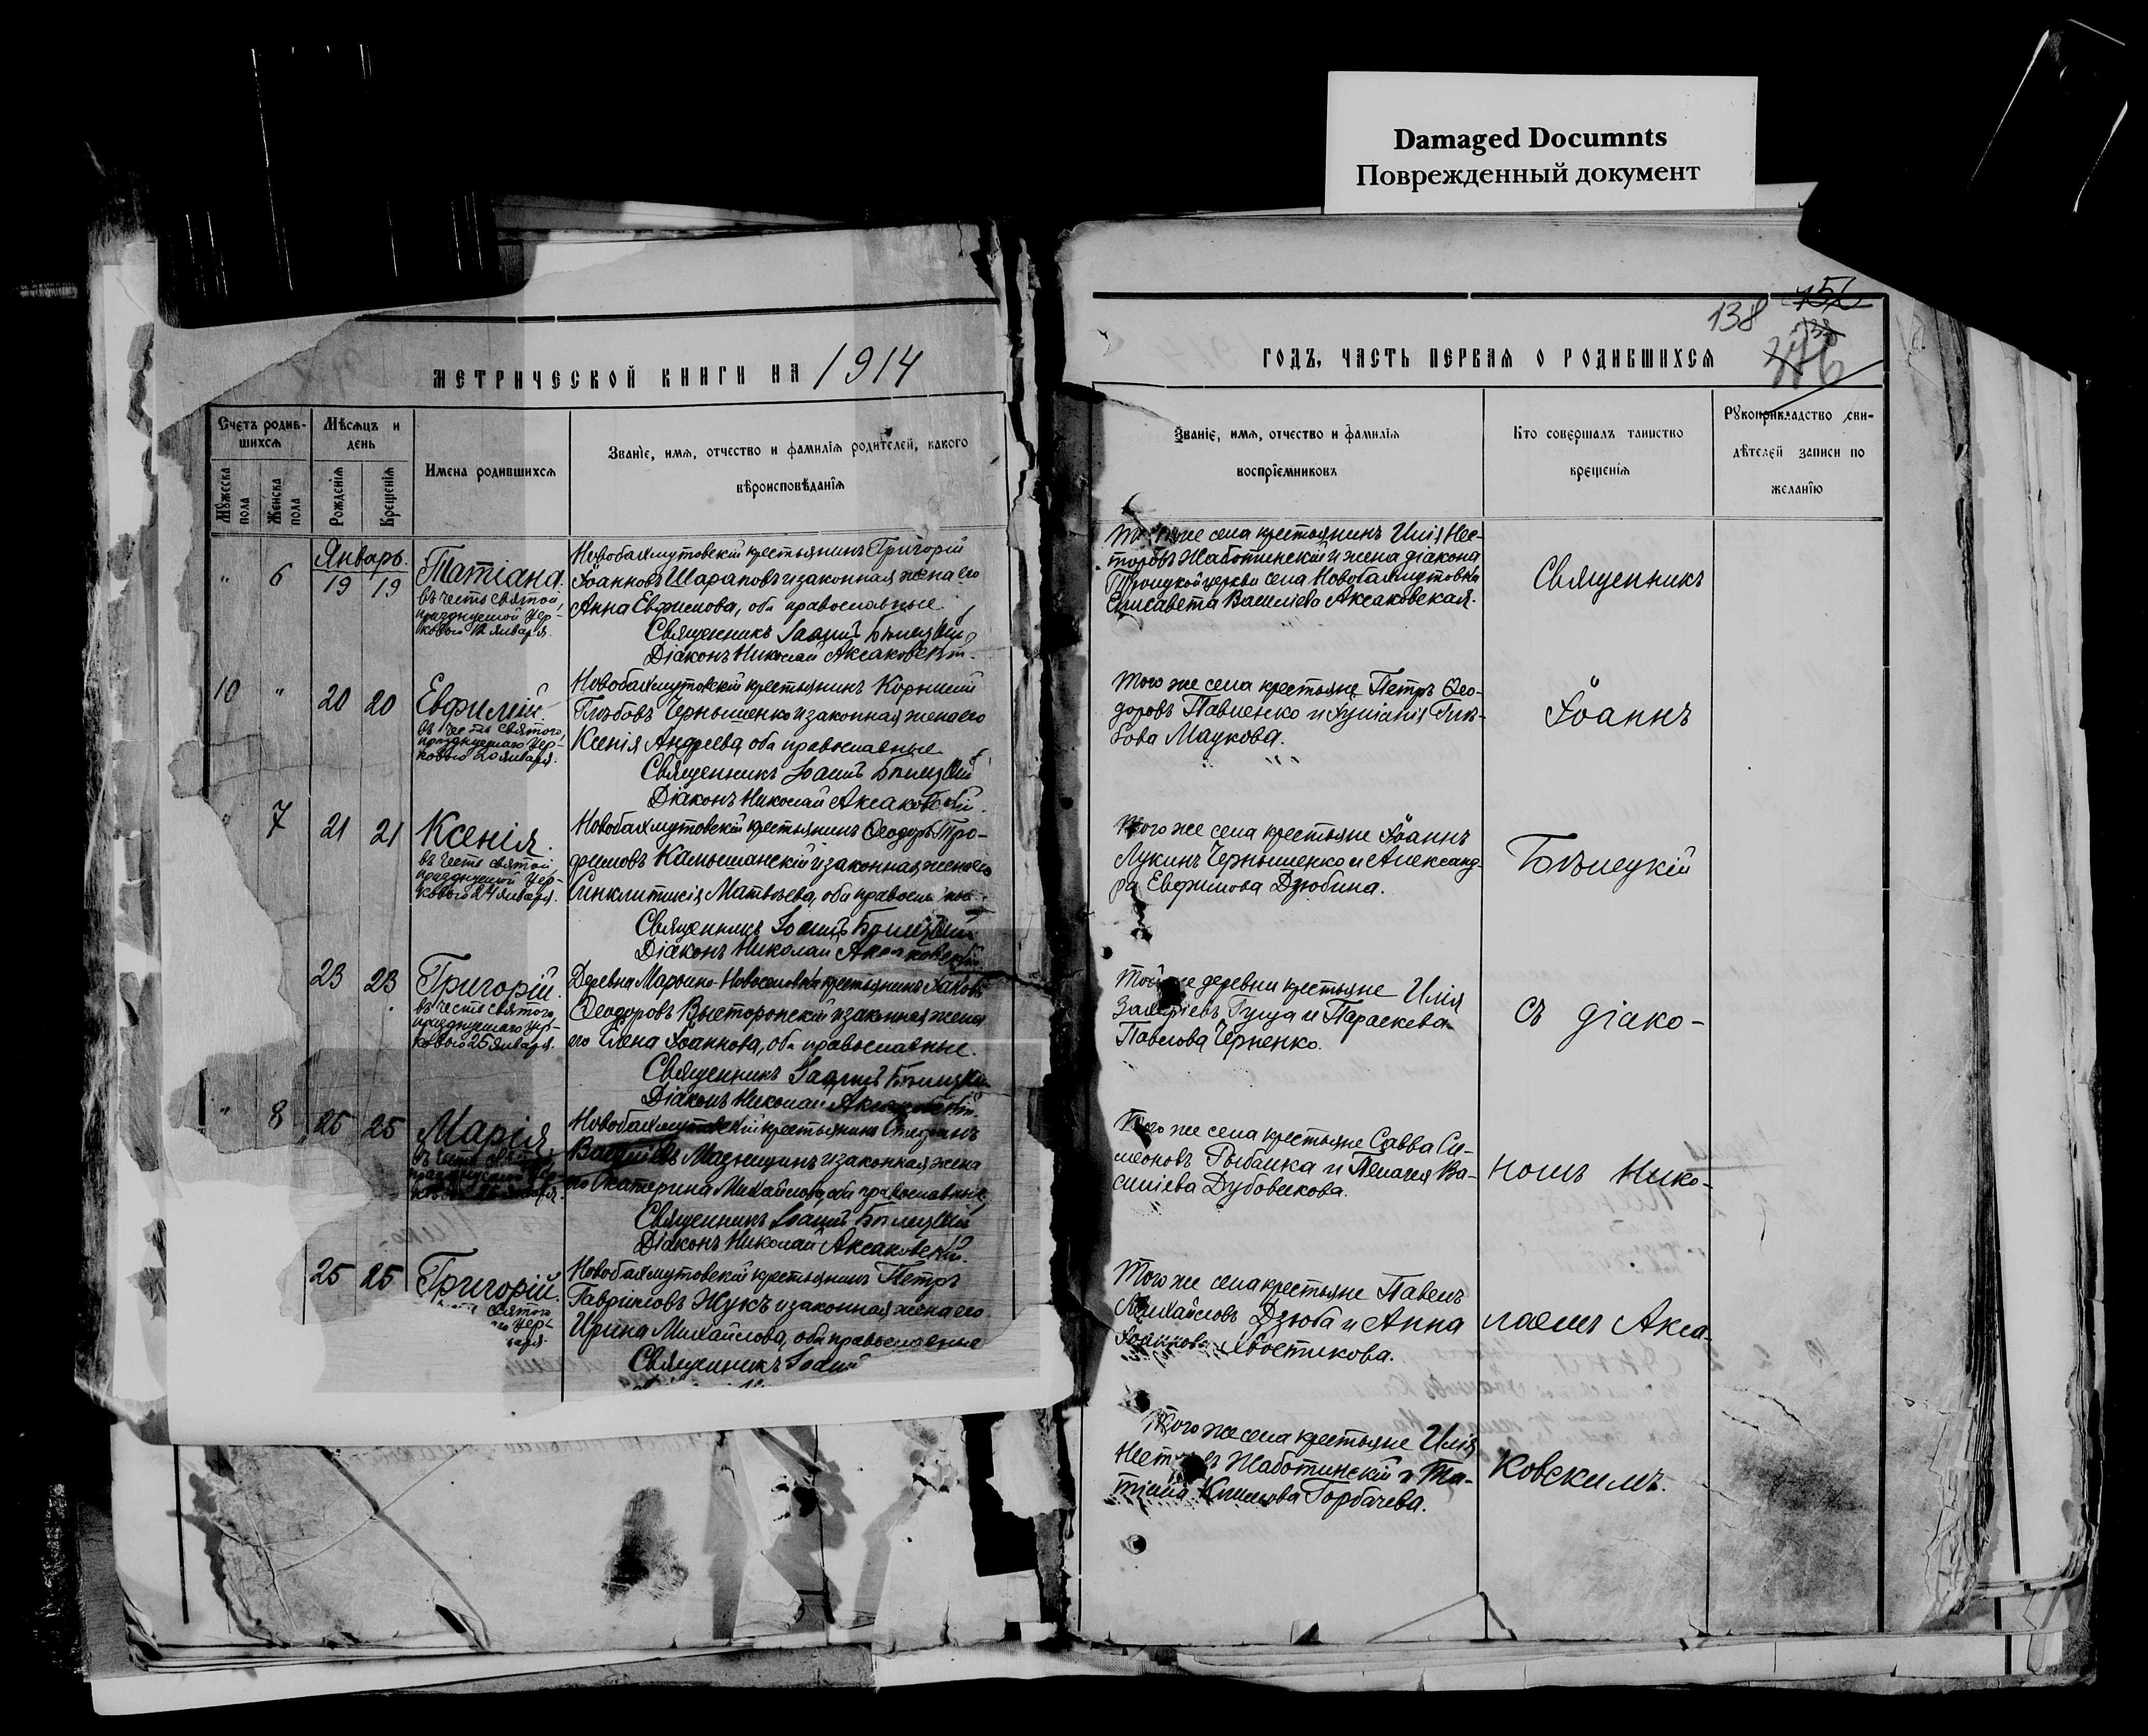 Damaged Documnts
Поврежденный документ
МЕТРИЧЕСКОЙ КНИГИ НА 1914
Счетъ родив-
шихся
Мѣсяцъ и
день
Имена родившихся
Званіе, имя, отчество и фамилія родителей, какого
вѣроисповѣданія
Мужеска
пола
Женска
пола
Рожденія
Крещенія
Январь.
" 6 19 19
Татіана.
въ честь святой,
празднуемой Цер-
ковью 12 января.
Новобахмутовскій крестьянинъ Григорій
Іоанновъ Шараповъ и законная жена его
Анна Евфимова, оба православные
Священникъ Іоаннъ Бѣлецкій
Діаконъ Николай Аксаковскій.
10 " 20 20
Евфимій.
въ честь святого,
празднуемаго Цер-
ковью 20 января.
Новобахмутовскій крестьянинъ Корнилій
Глѣбовъ Чернышенко и законная жена его
Ксенія Андреева, оба православные
Священникъ Іоаннъ Бѣлецкій
Діаконъ Николай Аксаковскій.
7 21 21
Ксенія.
въ честь святой
празднуемой Цер-
ковью 24 января.
Новобахмутовскій крестьянинъ Ѳеодоръ Тро-
фимовъ Камышанскій и законная жена его
Синклитикія Матвѣева, оба
Священникъ Іоаннъ Бѣлецкій
Діаконъ Николай Аксаковскій.
23 23
Григорій.
въ честь святого,
празднуемаго Цер-
ковью 25 января.
Деревни Марьино-Новоселовки крестьянинъ Іаковъ
Ѳеодоровъ Высторопскій и законная жена
его Елена Іоаннова, оба православные.
Священникъ Іоаннъ Бѣлецкій
Діаконъ Николай Аксаковскій.
" 8 25 25
Марія
въ честь
Новобахмутовскій крестьянинъ Стефанъ
и законная жена
его Екатерина Михайлова, оба православные
Священникъ Іоаннъ Бѣлецкій
Діаконъ Николай Аксаковскій.
25 25
Григорій.
святого
Цер-
Новобахмутовскій крестьянинъ Петръ
Гавріиловъ Жукъ и законная жена его
Ирина Михайлова, оба православные
Священникъ Іоаннъ
138
ГОДЪ, ЧАСТЬ ПЕРВАЯ О РОДИВШИХСЯ
Званіе, имя, отчество и фамилія
воспріемниковъ
Кто совершалъ таинство
крещенія
Рукоприкладство сви-
дѣтелей записи по
желанію
Того же села крестьянинъ Илія Нес-
торовъ Жаботинскій и жена діакона
Троицкой церкви села Новобахмутовки
Елисавета Василіева Аксаковская.
Священникъ
Того же села крестьяне Петръ Ѳео-
доровъ Павленко и Іуліанія Глѣ-
бова Маукова.
Іоаннъ
Того же села крестьяне Іоаннъ
Лукинъ Чернышенко и Александ-
ра Евфимова Дзюбина.
Бѣлецкій
Той же деревни крестьяне Илія
Захаріевъ Гуща и Параскева
Павлова Черненко.
съ діако-
Того же села крестьяне Савва Си-
меоновъ Рыбалка и Пелагея Ва-
силіева Дубовикова.
номъ Нико-
Того же села крестьяне Павелъ
Михайловъ Дзюба и Анна
Іоаннова Хвостикова.
лаемъ Акса-
Того же села крестьяне Илія
Несторовъ Жаботинскій и Та-
тіана Климова Горбачева.
ковскимъ.